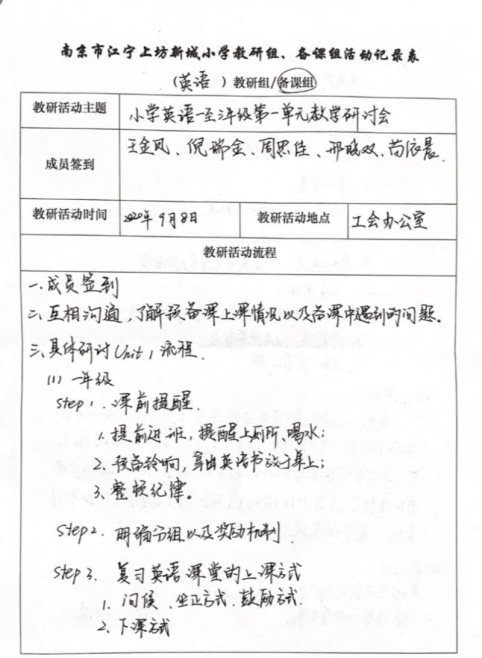 南京市江宁上坊新城小学教研组、备课组活动记录表
（英语）教研组/备课组
教研活动主题 小学英语一至三年级第一单元教学研讨会
成员签到 王金凤、倪瑞金、周思佳、邢晓双、苟依晨.
教研活动时间 2020年9月8日 教研活动地点 工会办公室
教研活动流程
一.成员签到
二.互相沟通,了解预备课上课情况以及备课中遇到的问题。
三.具体研讨Unit 1 流程.
(1) 一年级
Step 1. 课前提醒.
1. 提前进班,提醒上厕所、喝水;
2. 预备铃响,拿出英语书放于桌上;
3. 整顿纪律。
Step 2. 明确分组以及奖励机制.
Step 3. 复习英语课堂的上课方式
1. 问候、坐正方式、鼓励方式
2. 下课方式